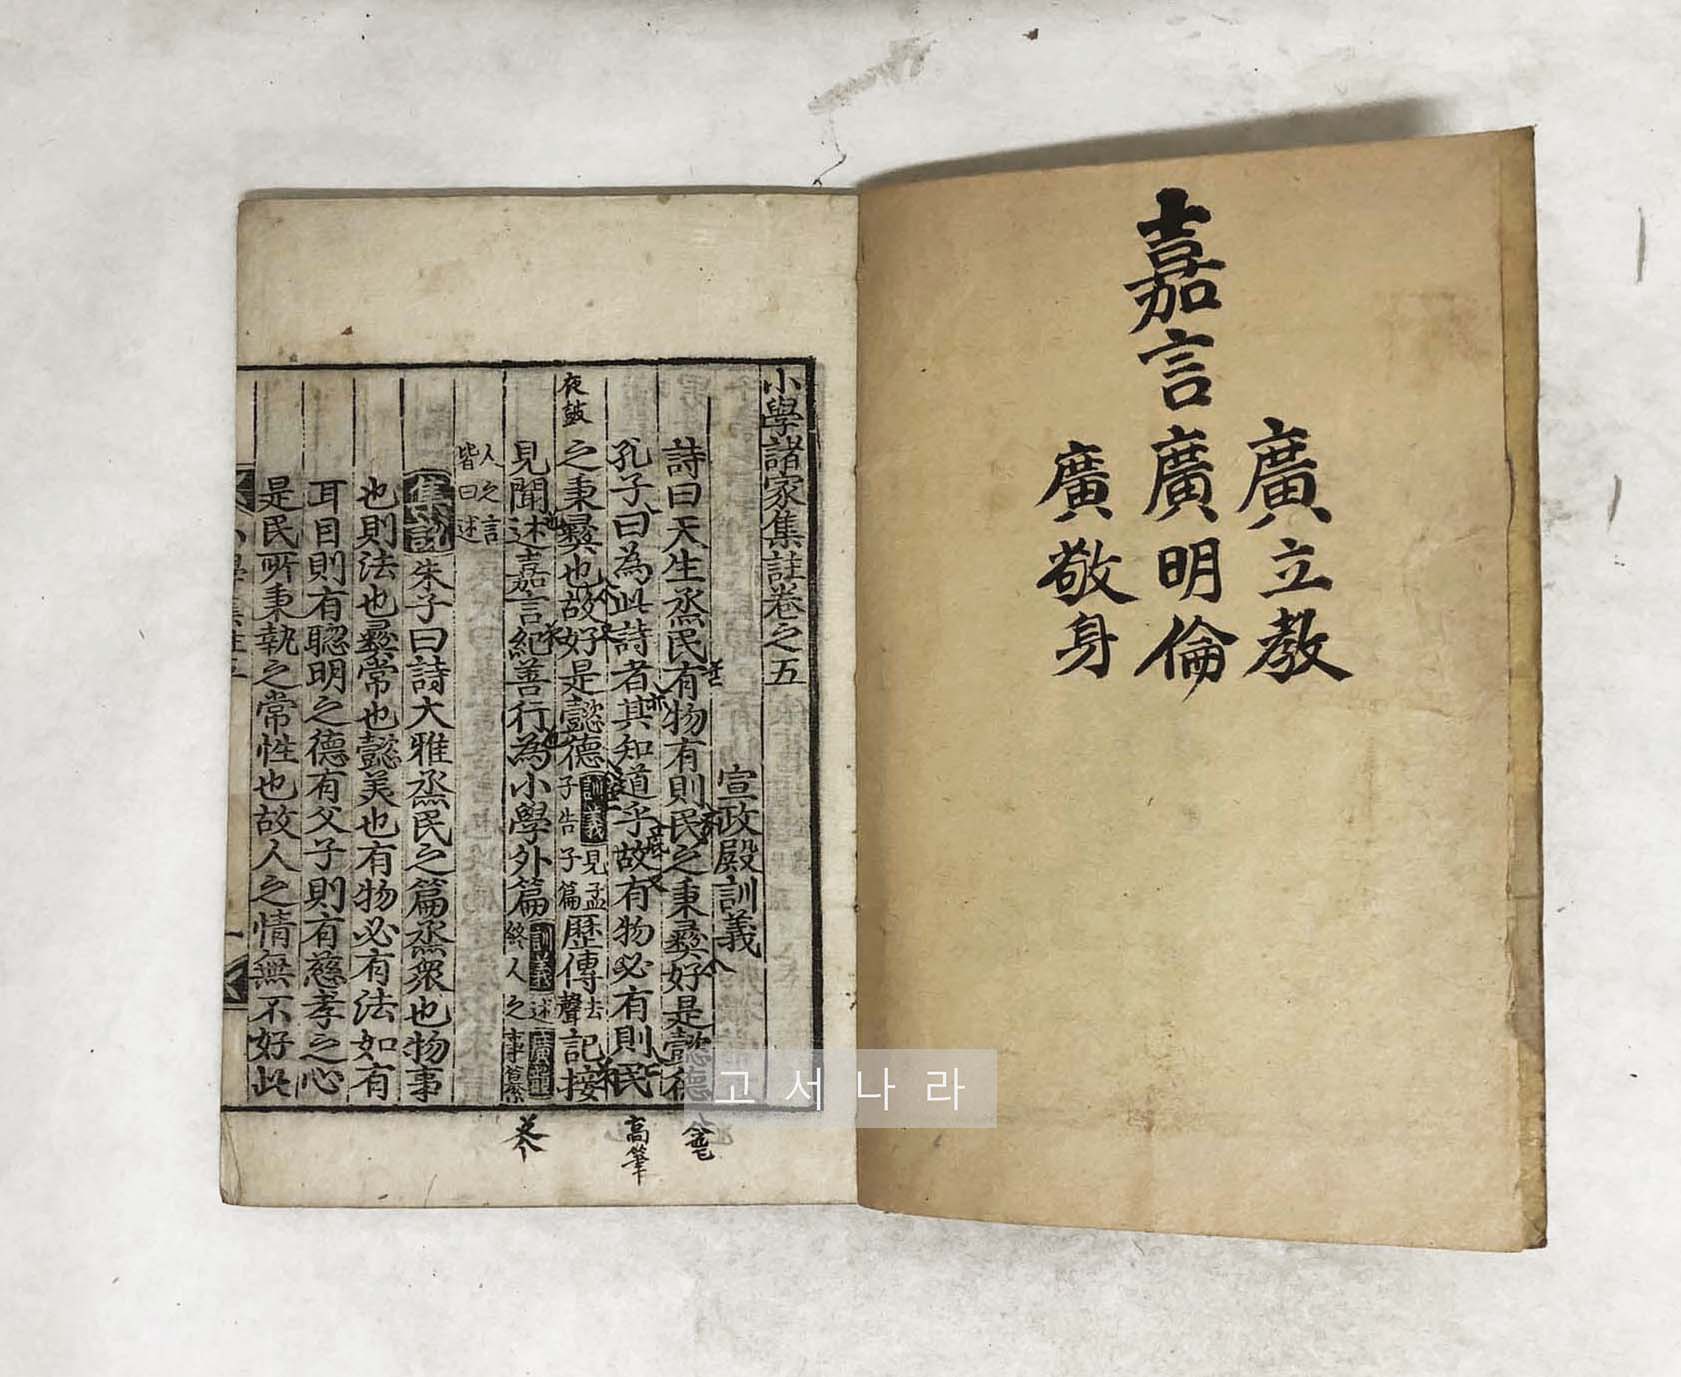 嘉言
廣立教
廣明倫
廣敬身
小學諸家集註卷之五
宣政殿訓義
詩曰天生烝民有物有則民之秉彝好是懿德
孔子曰為此詩者其知道乎故有物必有則民
夜皷
之秉彝也故好是懿德訓義見孟子告子篇歷傳去聲記接
見聞述嘉言紀善行為小學外篇訓義述終人之事
人之言皆曰述
集說朱子曰詩大雅烝民之篇烝衆也物事
也則法也彝常也懿美也有物必有法如有
耳目則有聦明之德有父子則有慈孝之心
是民所秉執之常性也故人之情無不好此
高筆
고서나라